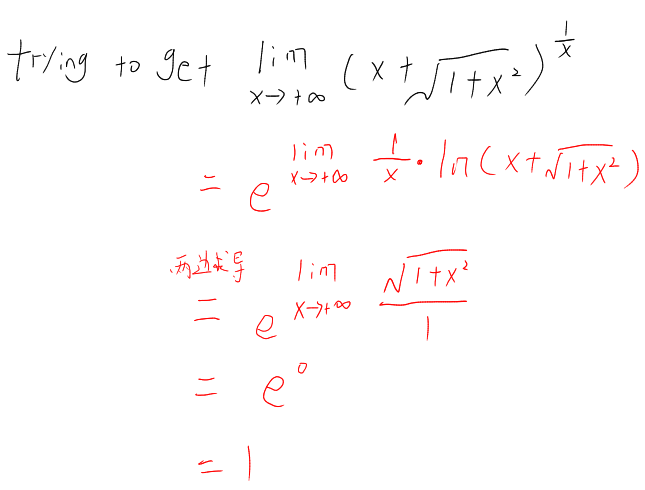 trying to get lim x→+∞ (x+√(1+x²))^(1/x)
= e^(lim x→+∞ 1/x · ln(x+√(1+x²)))
两边求导
= e^(lim x→+∞ √(1+x²)/1)
= e^0
= 1